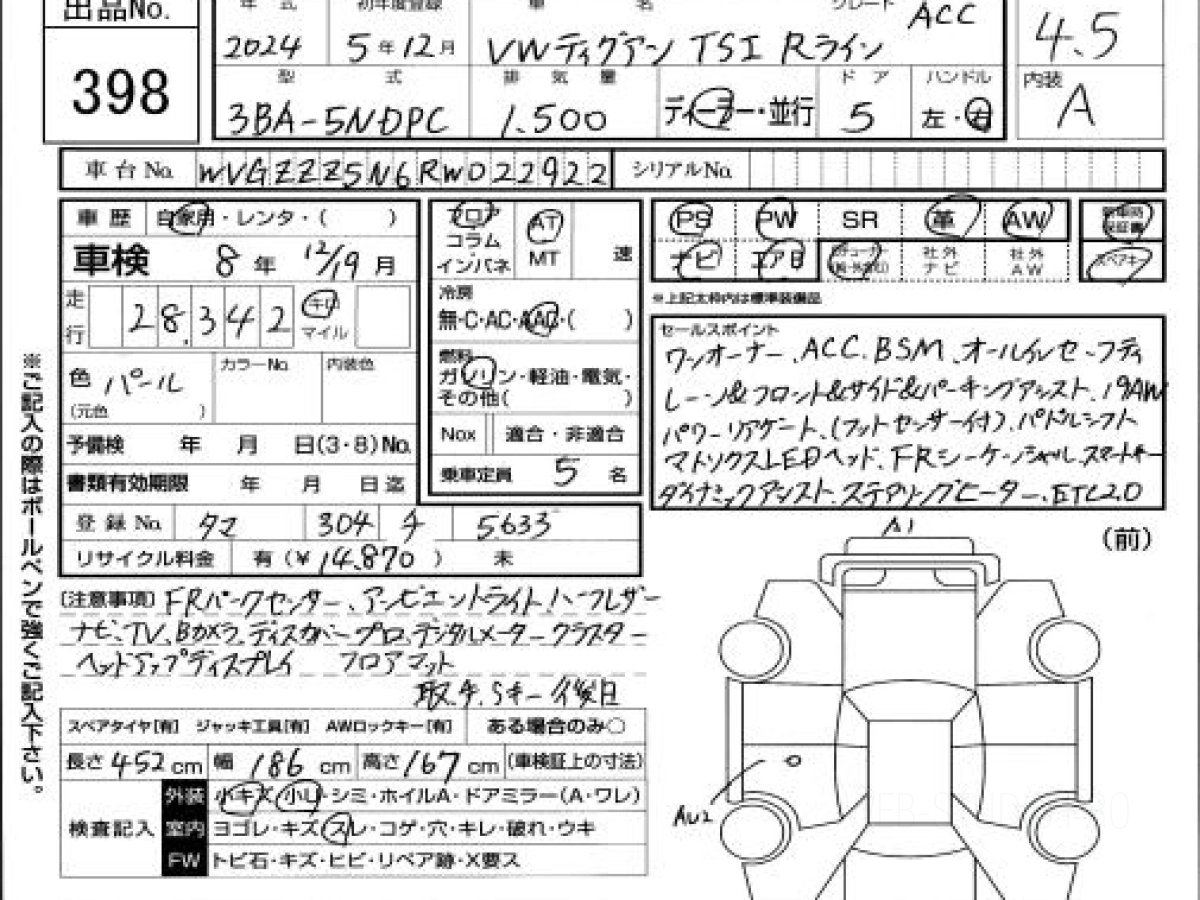 出品No.
398
年式 2024
初年度登録 5年12月
車名 VWティグアン TSI Rライン
グレード ACC
4.5
型式 3BA-5NDPC
排気量 1.500
ディーラー・並行
ドア 5
ハンドル 左・右
内装 A
車台No. WVGZZZ5N6RW022922
シリアルNo.
車歴 自家用・レンタ・( )
車検 8年 12/19月
走行 28,342 キロ マイル
色 パール
(元色 )
カラーNo.
内装色
予備検 年 月 日(3・8)No.
書類有効期限 年 月 日迄
登録No. タマ 304 チ 5633
リサイクル料金 有(¥14,870) 未
フロア
コラム
インパネ
AT
MT
速
冷房
無・C・AC・AAC・( )
燃料
ガソリン・軽油・電気・
その他( )
Nox 適合・非適合
乗車定員 5名
PS PW SR 革 AW
ナビ エアB
社外ナビ
社外AW
保証書
スペアキー
※上記太枠内は標準装備品
セールスポイント
ワンオーナー、ACC、BSM、オールインセーフティ
レーン&フロント&サイド&パーキングアシスト、19AW
パワーリアゲート、(フットセンサー付)、パドルシフト
マトリックスLEDヘッド、FRシーケンシャル、スマートキー
ダイナミックアシスト、ステアリングヒーター、ETC2.0
[注意事項] FRパークセンサー、アンビエントライト、ハーフレザー
ナビ、TV、Bカメラ、ディスカバープロ、デジタルメータークラスター
ヘッドアップディスプレイ フロアマット
取、チ、Sキー後日
スペアタイヤ[有] ジャッキ工具[有] AWロックキー[有] ある場合のみ○
長さ 452cm 幅 186cm 高さ 167cm (車検証上の寸法)
検査記入
外装 小キズ・小凹・シミ・ホイルA・ドアミラー(A・ワレ)
室内 ヨゴレ・キズ・スレ・コゲ・穴・キレ・破れ・ウキ
FW トビ石・キズ・ヒビ・リペア跡・X要ス
(前)
A1
AU2
※ご記入の際はボールペンで強くご記入下さい。